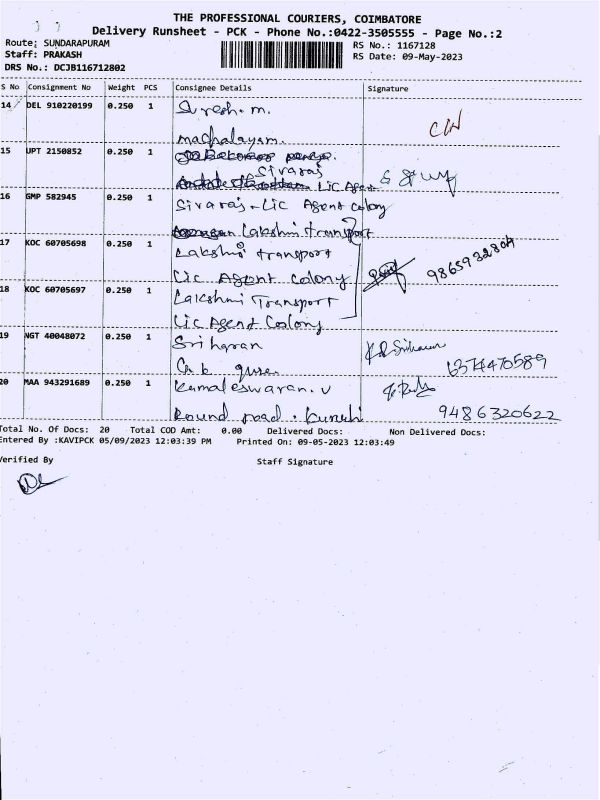 THE PROFESSIONAL COURIERS, COIMBATORE
Delivery Runsheet - PCK - Phone No.:0422-3505555 - Page No.:2
Route: SUNDARAPURAM
RS No.: 1167128
Staff: PRAKASH
RS Date: 09-May-2023
DRS No.: DCJB116712802
S No Consignment No Weight PCS Consignee Details Signature
14 DEL 910220199 0.250 1 Suresh. m.
CW
15 UPT 2150852 0.250 1
Sivaraj
Lic Agent
16 GMP 582945 0.250 1 Sivaraj - Lic Agent Colony
Lakshmi transport
17 KOC 60705698 0.250 1 Lakshmi transport
9865932804
Lic Agent Colony
18 KOC 60705697 0.250 1 Lakshmi Transport
Lic Agent Colony
19 NGT 40048072 0.250 1 Sriharan
20 MAA 943291689 0.250 1 Kamaleswaran. v
Round road.
9486320622
Total No. Of Docs: 20 Total COD Amt: 0.00 Delivered Docs: Non Delivered Docs:
Entered By :KAVIPCK 05/09/2023 12:03:39 PM Printed On: 09-05-2023 12:03:49
Verified By Staff Signature